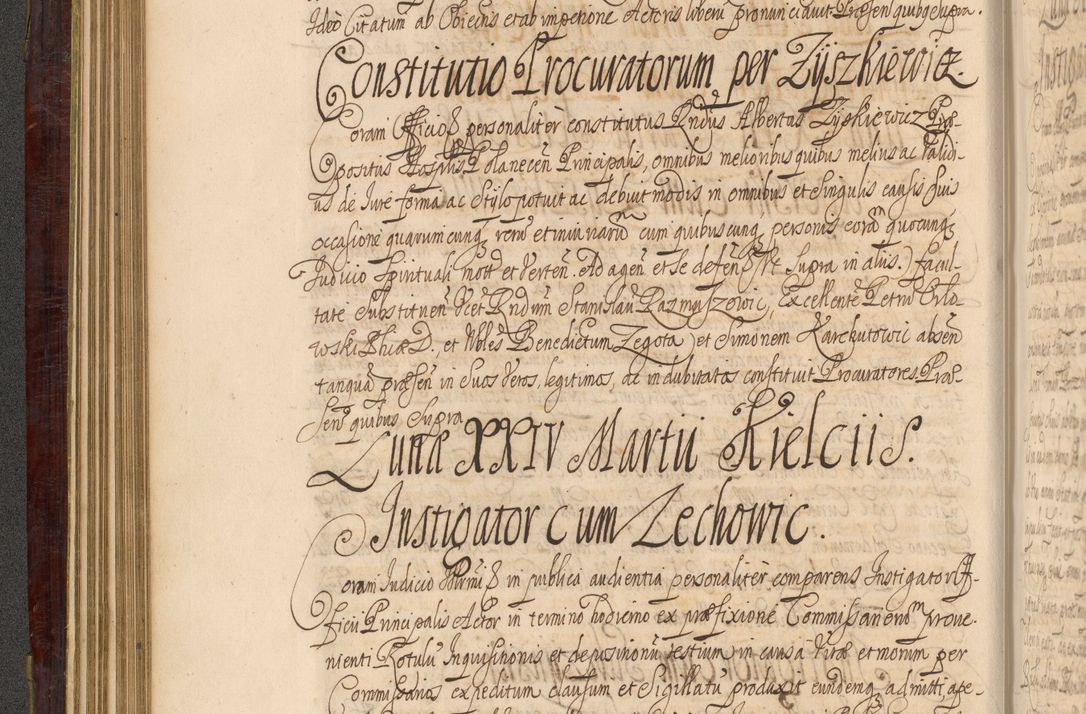 Ideo Citatum ab Obiectis et ab impetitione Actoris liberu pronunciavit Præsen quibq supra.
Constitutio Procuratorum per Zyszkiewicz.
Coram Officio & personalitèr constitutus Rndus Albertus Zyskiewicz Præ-
positus Hospitlis Polanecen Principalis, omnibus melioribus quibus melius ac Validi-
us de Iure forma ac Stylo potuit ac debuit modis in omnibus et Singulis causis suis
occasione quarumcunq rerũ et iniuriarũ cum quibuscunq personis corã quocunq
Iudicio Spirituali mott et Verten. Ad agen et se defen (Ut Supra in alijs.) facul-
tate Substituen Vcet Rndum Stanislau Razmuszowic, Excellente Petru Orlo-
wski Phiæ D., et Nbles Benedictum Zegota et Simonem Karckutowic absen
tanquã præsen in suos Veros, legitimos, ac indubitatos constituit Procuratores Præ-
sen quibus Supra
Luna XXIV Martii Kielciis.
Instigator cum Zechowic.
Coram Iudicio & in publica audientia personalitèr comparens Instigator Of-
ficii Principalis Actor in termino hodierno ex præfixione Commissarioru prove-
nienti Rotulu Inquisitionis et depositionũ testium in causa Vitæ et morum per
Commissarios expeditum clausum et Sigillatũ produxit eundemq admitti, ape-